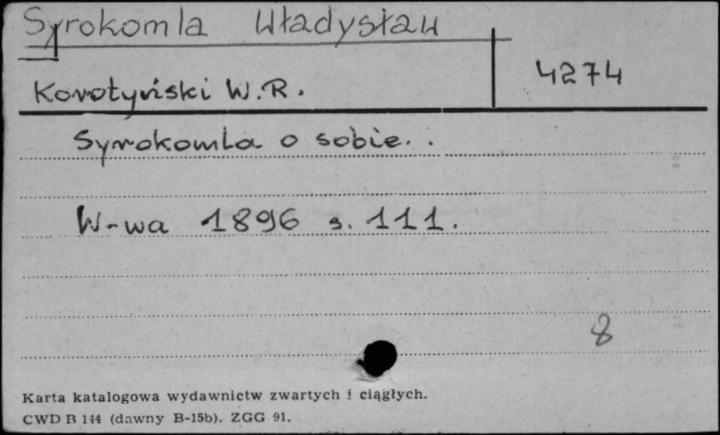 Syrokomla Władysław
Korotyński W.R.
4274
Syrokomla o sobie. .
W-wa 1896 s. 111.
8
Karta katalogowa wydawnictw zwartych i ciągłych.
CWD B 144 (dawny B-15b). ZGG 91.